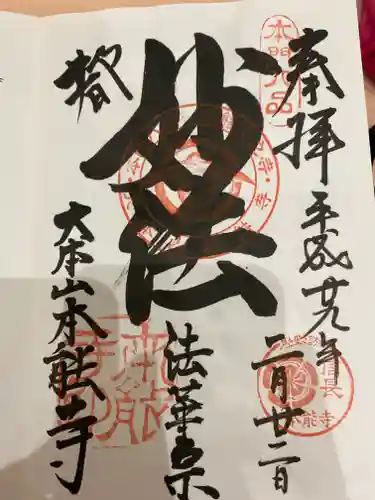 奉拝
平成廿九年
二月廿二日
妙法
法華宗
大本山本能寺
本門八品
信長
本能寺